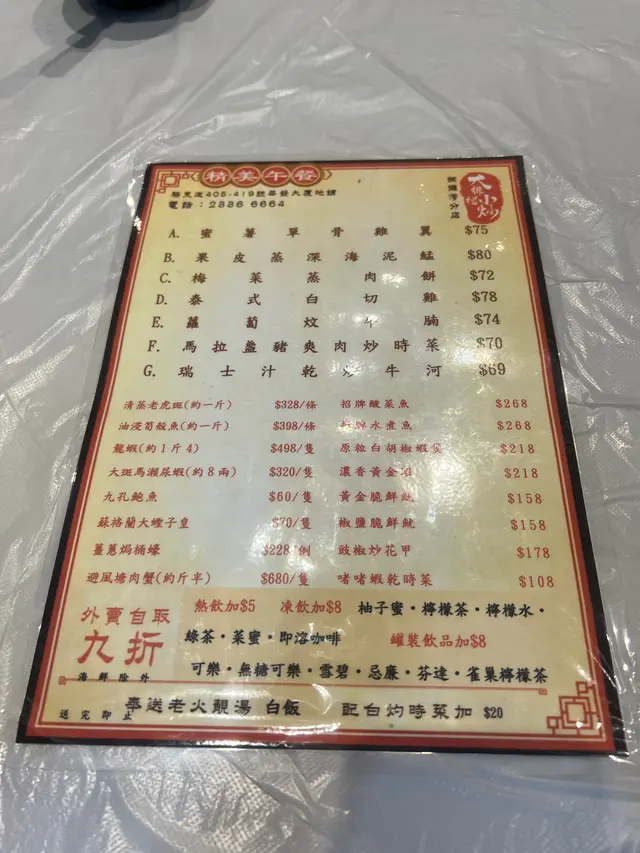 精美午餐
駱克道405-419號華發大廈地鋪
電話：2886 6664
銅鑼灣分店
大排檔小炒
A. 蜜薯單骨雞翼 $75
B. 果皮蒸深海泥鯭 $80
C. 梅菜蒸肉餅 $72
D. 泰式白切雞 $78
E. 蘿蔔炆牛腩 $74
F. 馬拉盞豬爽肉炒時菜 $70
G. 瑞士汁乾炒牛河 $69
清蒸老虎斑(約一斤) $328/條 招牌酸菜魚 $268
油浸筍殼魚(約一斤) $398/條 水煮魚 $268
龍蝦(約1斤4) $498/隻 原粒白胡椒蝦煲 $218
大斑馬瀨尿蝦(約8兩) $320/隻 濃香黃金 $218
九孔鮑魚 $60/隻 黃金脆鮮魷 $158
蘇格蘭大蟶子皇 $70/隻 椒鹽脆鮮魷 $158
薑蔥焗桶蠔 $228/例 豉椒炒花甲 $178
避風塘肉蟹(約斤半) $680/隻 啫啫蝦乾時菜 $108
外賣自取
九折
海鮮除外
熱飲加$5 凍飲加$8 柚子蜜·檸檬茶·檸檬水·
綠茶·菜蜜·即溶咖啡 罐裝飲品加$8
可樂·無糖可樂·雪碧·忌廉·芬達·雀巢檸檬茶
奉送老火靚湯 白飯 配白灼時菜加 $20
送完即止